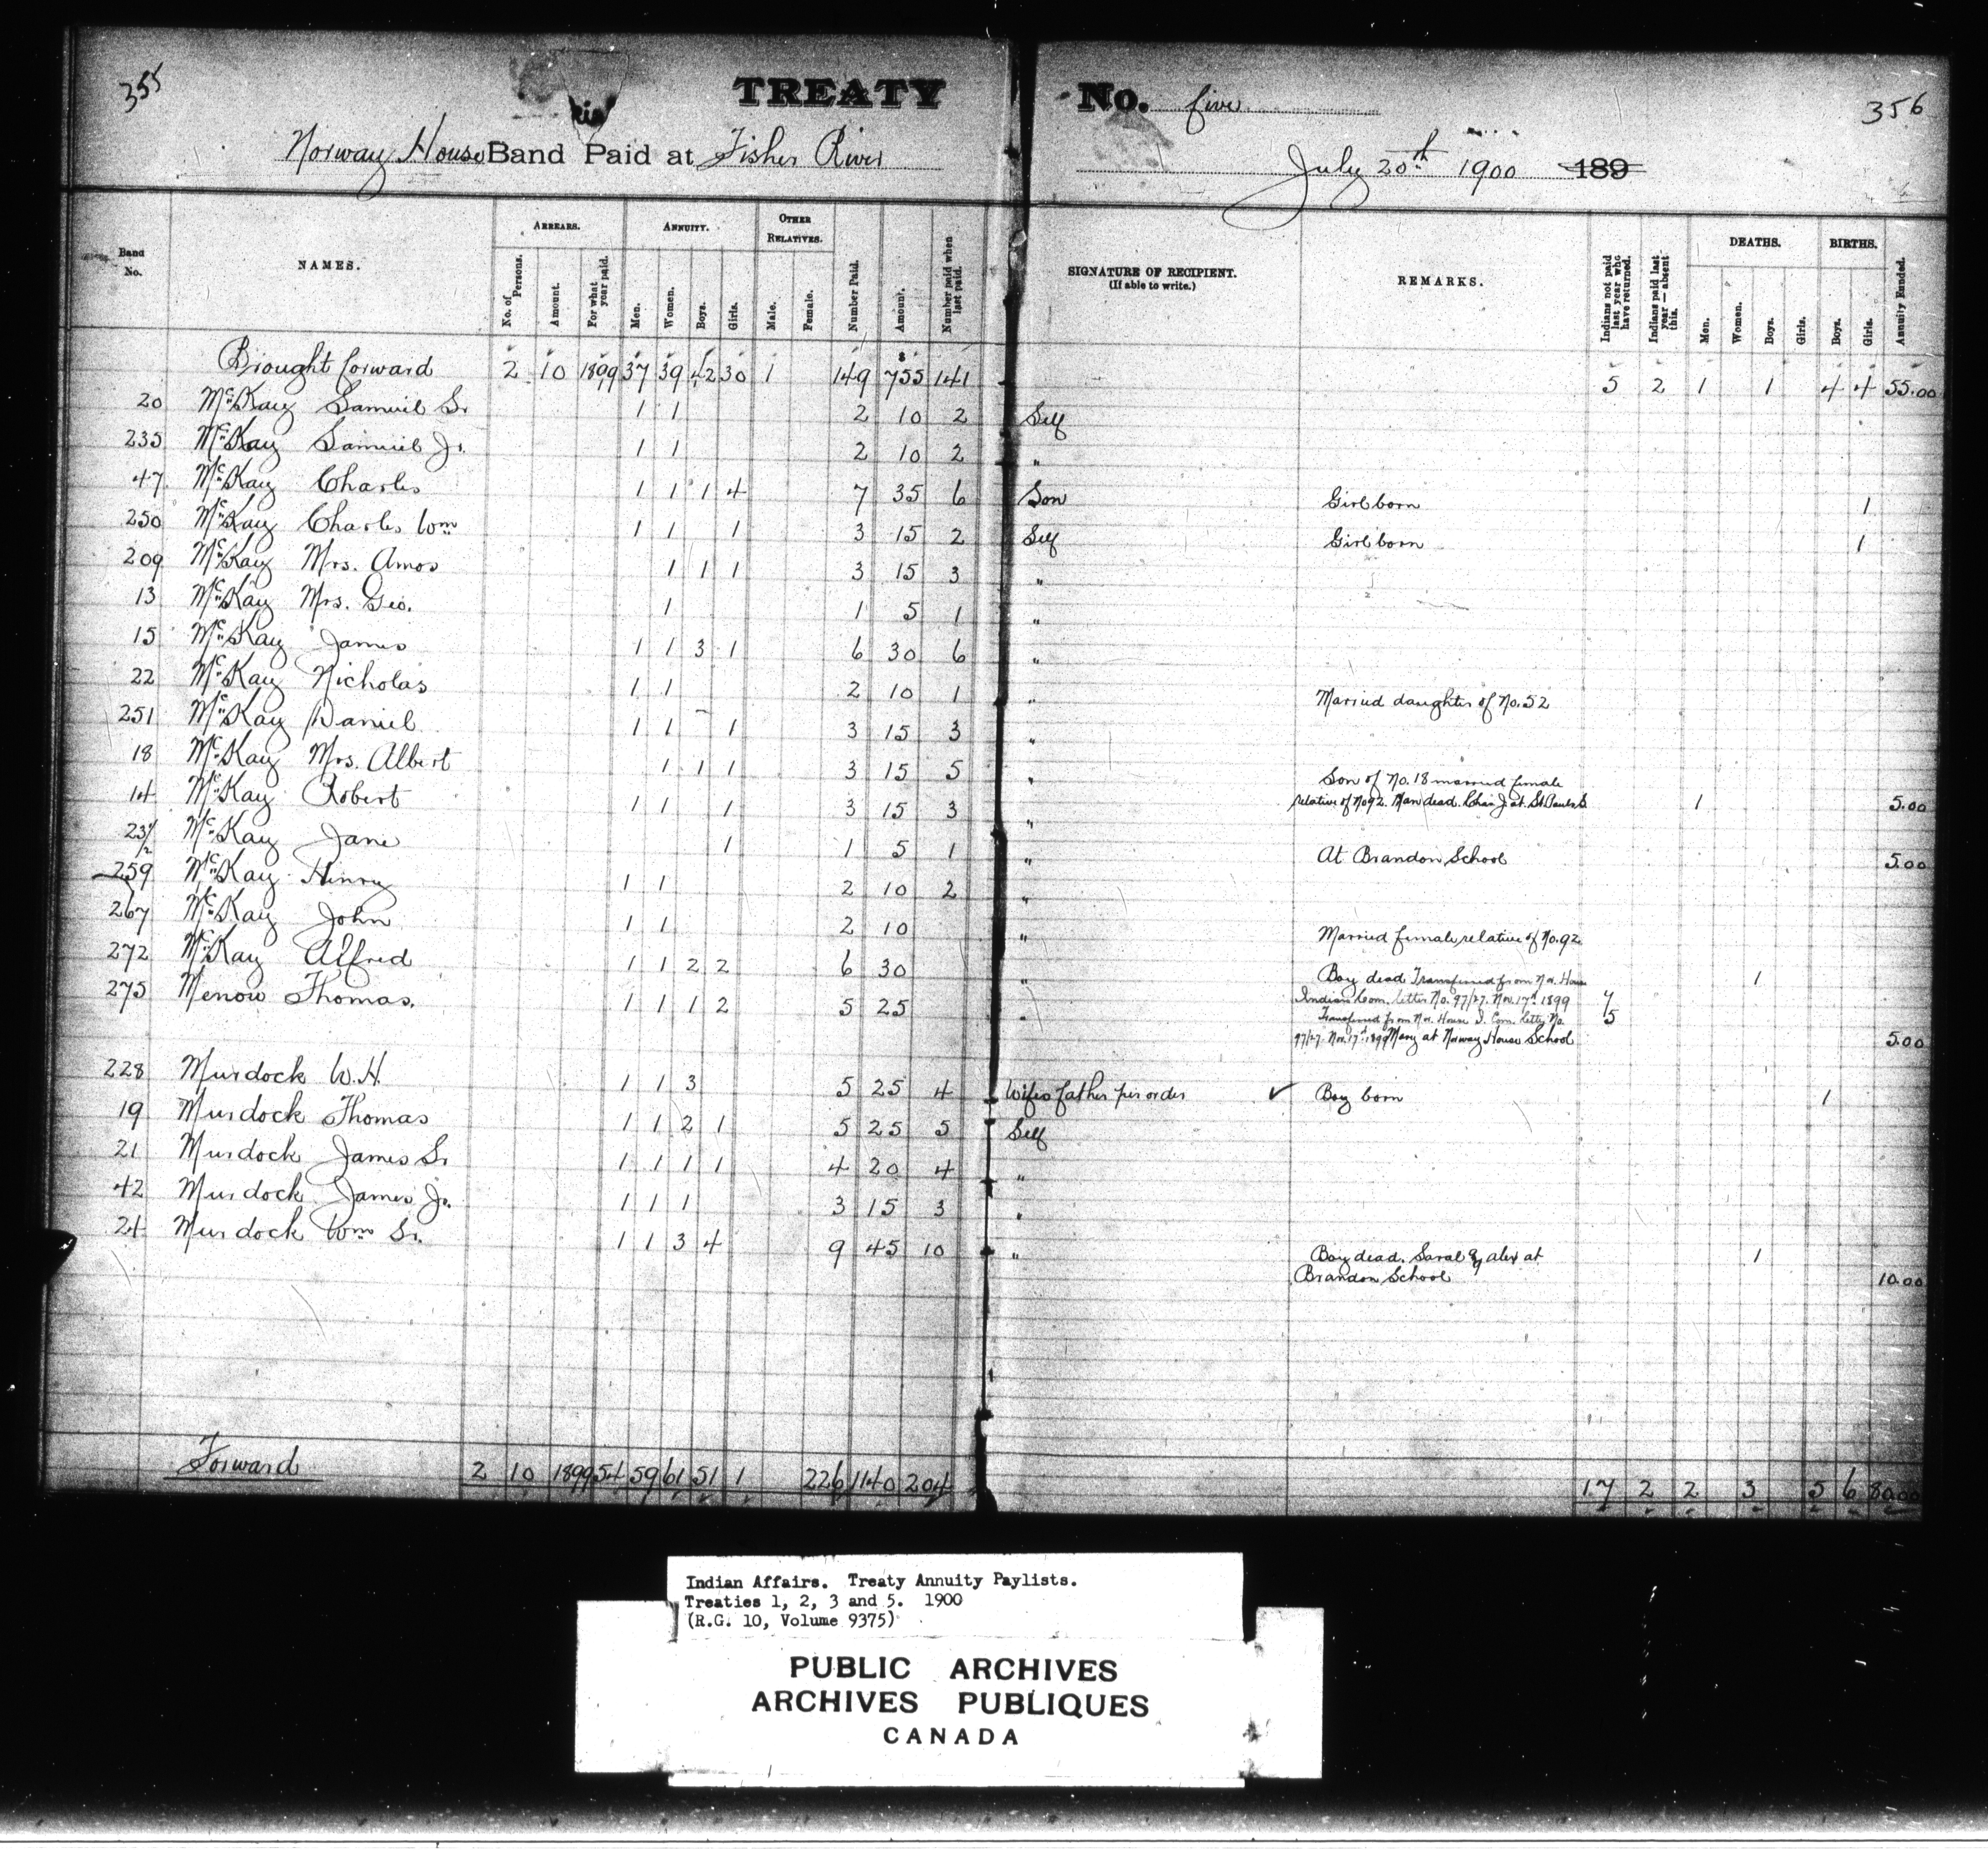 355
TREATY No. five
356
Norway House Band Paid at Fisher River
July 20th 1900 189
Band No.
NAMES.
ARREARS.
No. of Persons.
Amount.
For what year paid.
ANNUITY.
Men.
Women.
Boys.
Girls.
OTHER RELATIVES.
Male.
Female.
Number Paid.
Amount.
Number paid when last paid.
SIGNATURE OF RECIPIENT.
(If able to write.)
REMARKS.
Indians not paid last year who have returned.
Indians paid last year — absent this.
DEATHS.
Men.
Women.
Boys.
Girls.
BIRTHS.
Boys.
Girls.
Annuity Funded.
Brought forward 2 10 1899 37 39 42 30 1 149 $755 141 5 2 1 1 4 4 55.00
20 McKay Samuel Sr. 1 1 2 10 2 Self
235 McKay Samuel Jr. 1 1 2 10 2 "
47 McKay Charles 1 1 1 4 7 35 6 Son Girl born 1
250 McKay Charles Wm 1 1 1 3 15 2 Self Girl born 1
209 McKay Mrs. Amos 1 1 1 3 15 3 "
13 McKay Mrs. Geo. 1 1 5 1 "
15 McKay James 1 1 3 1 6 30 6 "
22 McKay Nicholas 1 1 2 10 1 " Married daughter of No. 52
251 McKay Daniel 1 1 1 3 15 3 "
18 McKay Mrs. Albert 1 1 1 3 15 5 " Son of No. 18 married female
14 McKay Robert 1 1 1 3 15 3 " relative of No 92. Man dead. at St. Pauls S. 1 5.00
23 1/2 McKay Jane 1 1 5 1 " At Brandon School 5.00
259 McKay Henry 1 1 2 10 2 "
267 McKay John 1 1 2 10 " Married female relative of No. 92
272 McKay Alfred 1 1 2 2 6 30 " Boy dead Transferred from Nor. House 1
Indian Com. letter No. 97/27. Nov. 17th 1899 7
275 Menow Thomas. 1 1 1 2 5 25 " Transferred from Nor. House I. Com. letter No. 5
97/27. Nov. 17th 1899 Mary at Norway House School 5.00
228 Murdock W.H. 1 1 3 5 25 4 Wifes father per order ✓ Boy born 1
19 Murdock Thomas 1 1 2 1 5 25 5 Self
21 Murdock James Sr. 1 1 1 1 4 20 4 "
42 Murdock James Jr. 1 1 1 3 15 3 "
24 Murdock Wm Sr. 1 1 3 4 9 45 10 " Boy dead. Sarah & Alex at 1
Brandon School 10.00
Forward 2 10 1899 54 59 61 51 1 226 1140 204 17 2 2 3 5 6 80.00
Indian Affairs. Treaty Annuity Paylists.
Treaties 1, 2, 3 and 5. 1900
(R.G. 10, Volume 9375)
PUBLIC ARCHIVES
ARCHIVES PUBLIQUES
CANADA